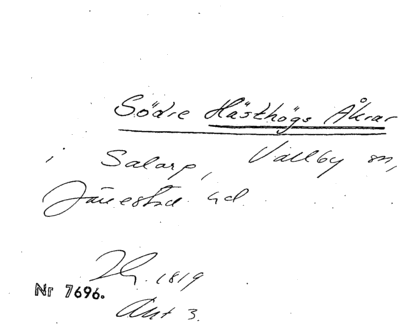 Södre Hästhögs Åkrar
i Salarp, Vallby sn,
Järrestad hd.
1819
Nr 7696.
Akt 3.